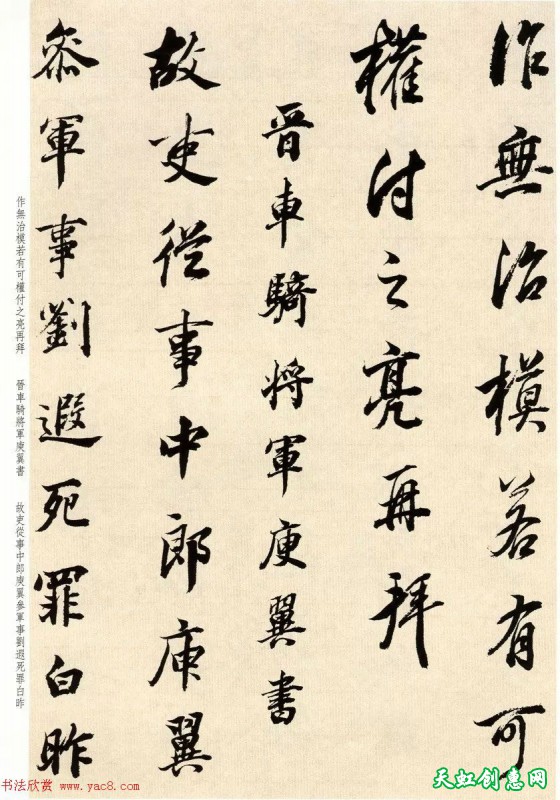 作無治模若有可
權付之亮再拜
晉車騎将軍庾翼書
故吏從事中郎庾翼
參軍事劉遐死罪白昨
作無治模若有可權付之亮再拜　晉車騎將軍庾翼書　故吏從事中郎庾翼參軍事劉遐死罪白昨
书法欣赏 www.yac8.com
天虹创意网